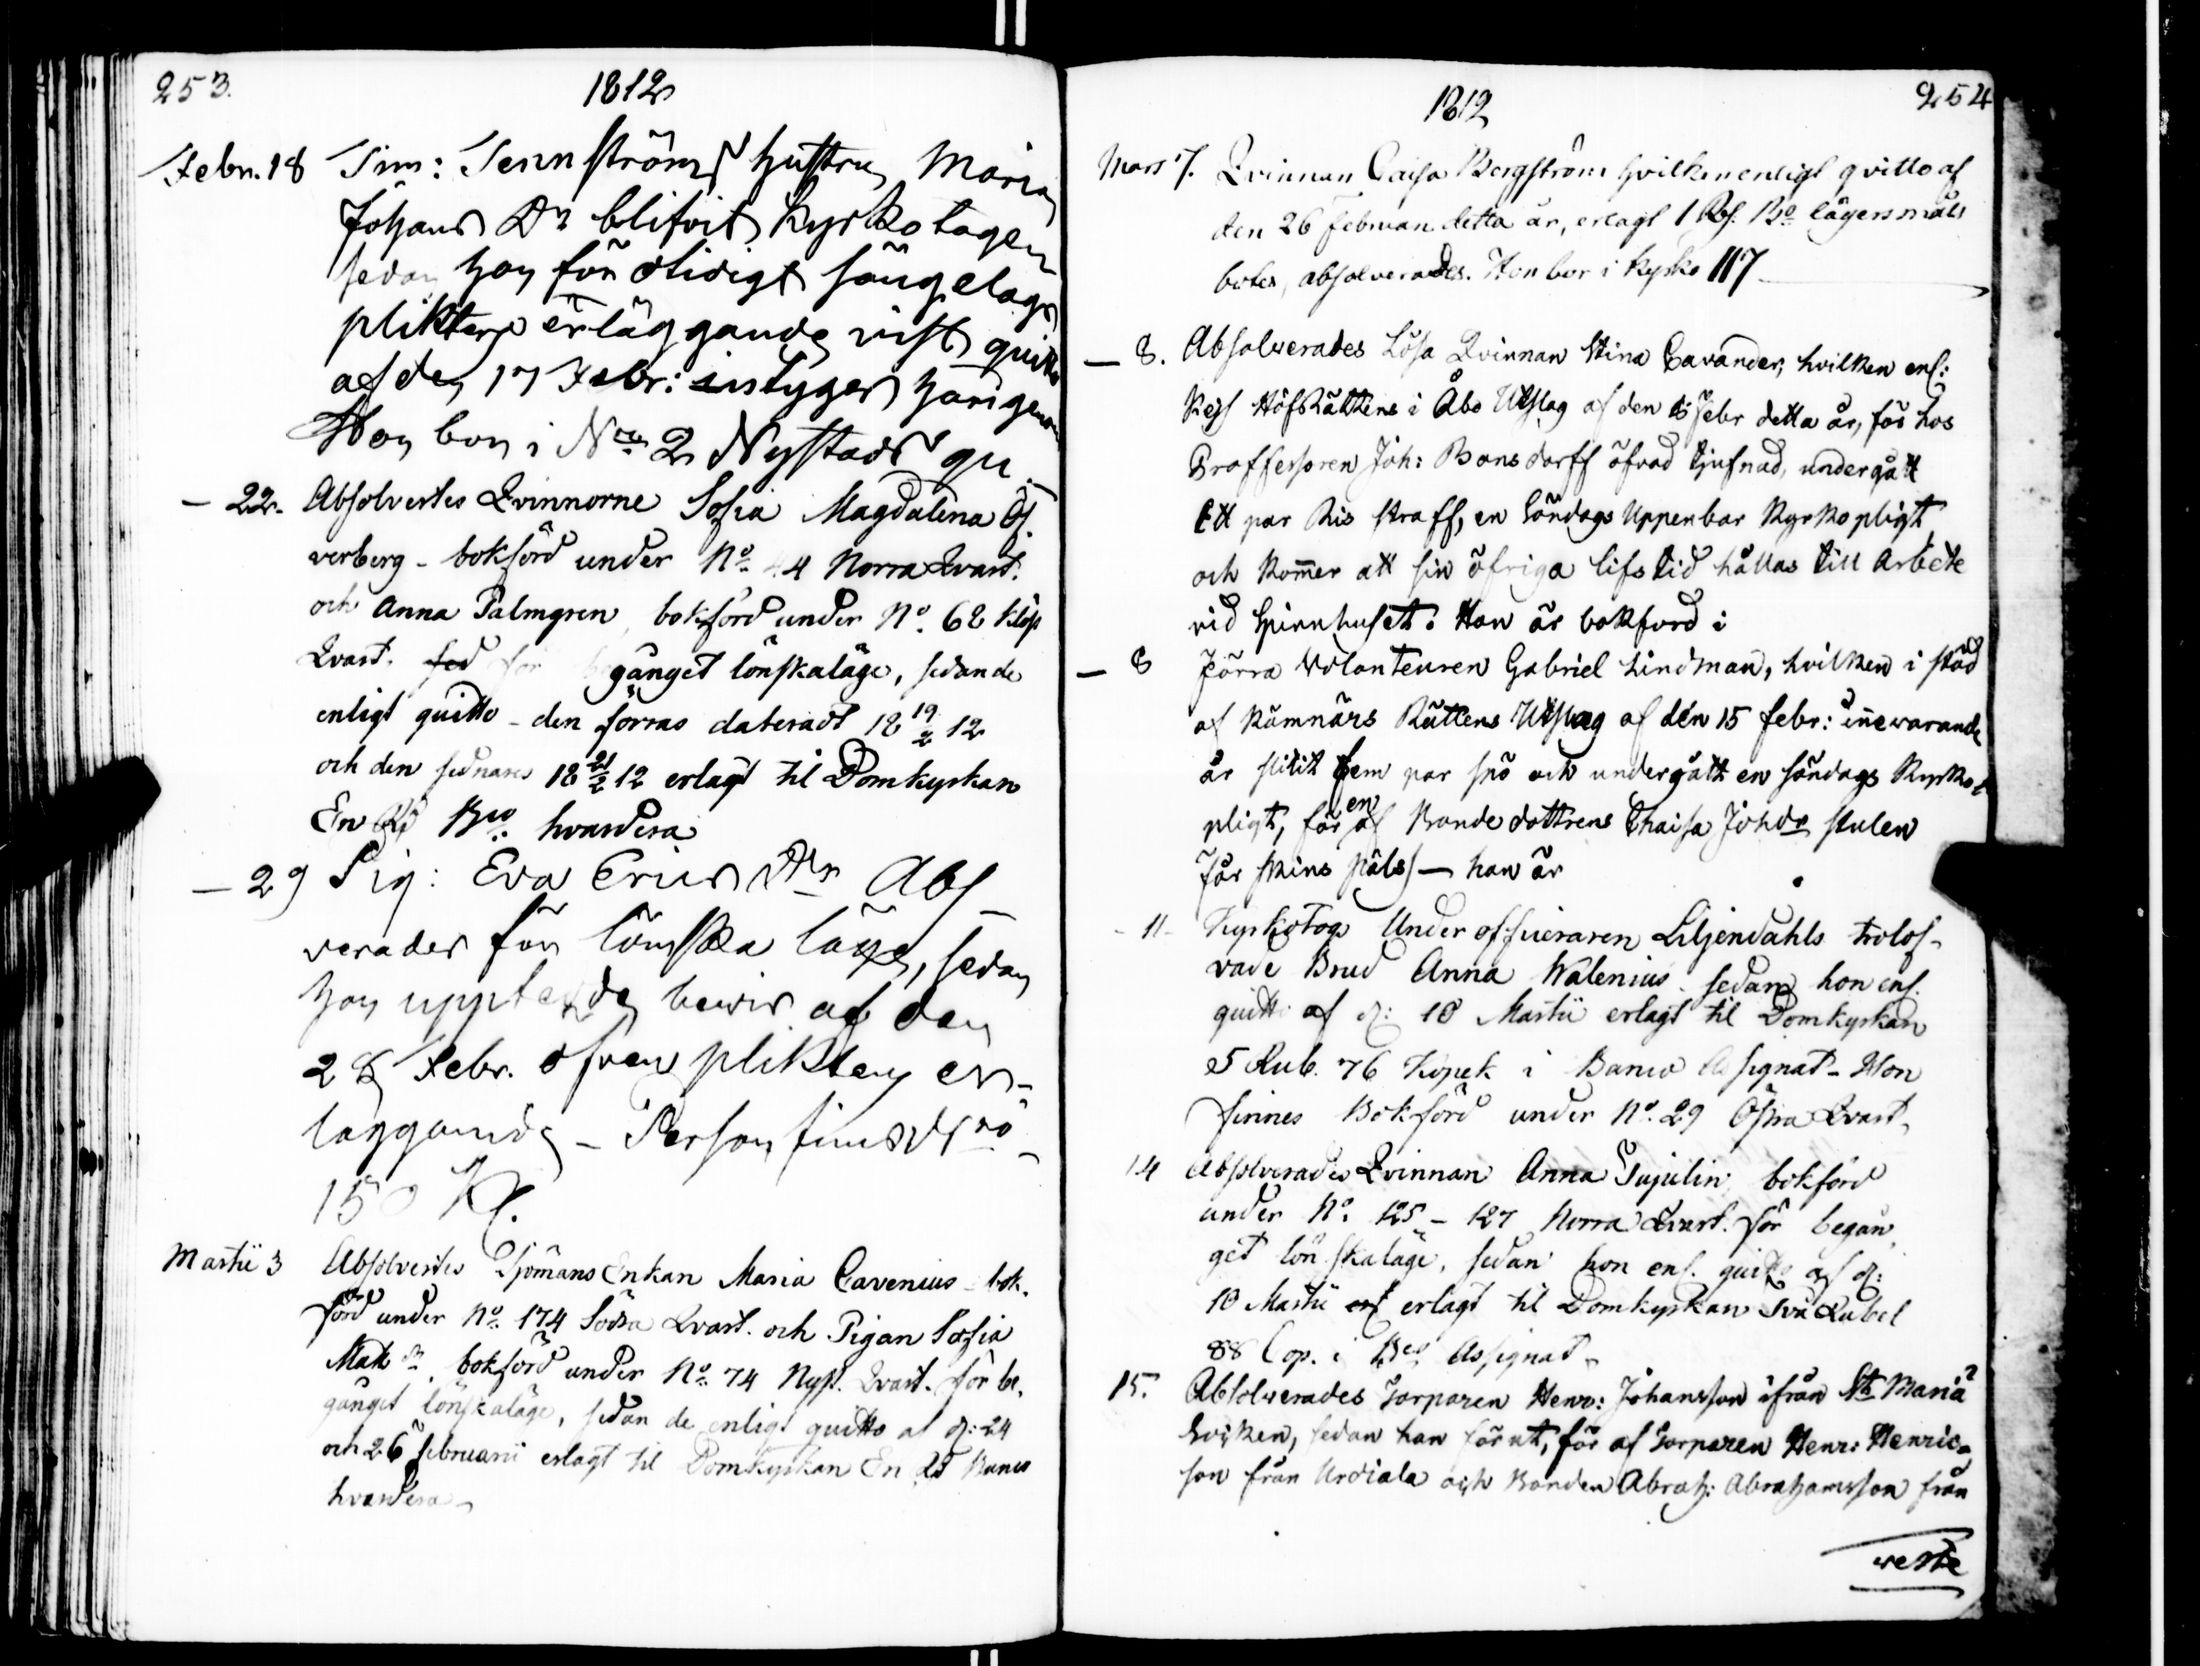 253.
1812
Febr. 18 Tim: Tennströms hustru Maria
Johans Dr blifvit kyrkotagen
sedan hon för otidigt sängelags
plikters erläggande vist quitto
af den 17 Febr: sistyges härigenom
Hon bor i Nro 2 Nystads qu.
- 22. Absolvertes Qvinnorne Sofia Magdalena Öf-
verberg - bokförd under No. 44 Norra Qvart.
och Anna Palmgren, bokförd under No. 62 Klöst
Qvart. för begånget lönskaläge, sedan de
enligt quitto - den förras dateradt 18 19/2 12
och den sednares 18 21/2 12 erlagt til Domkyrkan
En Rd Bco. hvardera
- 29 Pig: Eva Erics Dr Abs-
verades för lönska läge, sedan
hon uppted bevis af den
28 Febr. öfver plikten er-
läggande - Person finnes No
150 Kl.
Martii 3 Absolvertes Sjömans Enkan Maria Cavenius - bok-
förd under No. 174 Södra Qvart. och Pigan Sofia
Mats dr bokförd under No. 74 Nyst. Qvart. för be-
gånget lönskaläge, sedan de enligt quitto af d: 24
och 26 Februarii erlagt til Domkyrkan En Rd Banco
hvardera
1812
254
Mars 7. Qvinnan Caisa Bergström hvilken enligt qvitto af
den 26 Februari detta år, erlagt 1 Rd. Bo lägersmåls
boter, absolverades. Hon bor i kyrko 117
- 8. Absolverades Lösa Qvinnan Stina Cavander, hvilken enl:
Kejs Höfrättens i Åbo Utslag af den Febr detta år, för hos
Proffessoren Joh: Bonsdorff öfvad tjufnad, undergått
Ett par Ris straff, en Söndags Uppenbar Kyrkopligt
och kommer att sin öfriga lifstid hållas till Arbete
vid Spinnhuset. Hon är bokförd i
- 8 Förra Volonteuren Gabriel Lindman, hvilken i stöd
af Kämnärs Rättens Utslag af den 15 febr: innevarande
år slitit fem par spö och undergått en söndags Kyrko
pligt, för en af Bonde dottren Chaisa Johdr stulen
Får skins päls - han är
- 11 - Kyrkotogs Under officeraren Liljendahls trolof-
vade Brud Anna Walenius. sedan hon enl.
quitto af d: 10 Martii erlagt til Domkyrkan
5 Rub. 76 Kopek i Banco Assignat - Hon
finnes Bokförd under No. 29 Östra Qvart.
14 Absolverades Qvinnan Anna Tujulin, bokförd
under No. 125 - 127 Norra Qvart. för began-
get lönskaläge, sedan hon enl. quitto af d:
10 Martii erlagt til Domkyrkan Två Rubel
88 Cop. i Bco Assignat
15. Absolverades Torparen Henr: Johansson ifrån St Mariæ
Soken, sedan han förut, för af Torparen Henr: Henrics-
son från Urdiala och Bonden Abrah: Abrahamsson från
verte